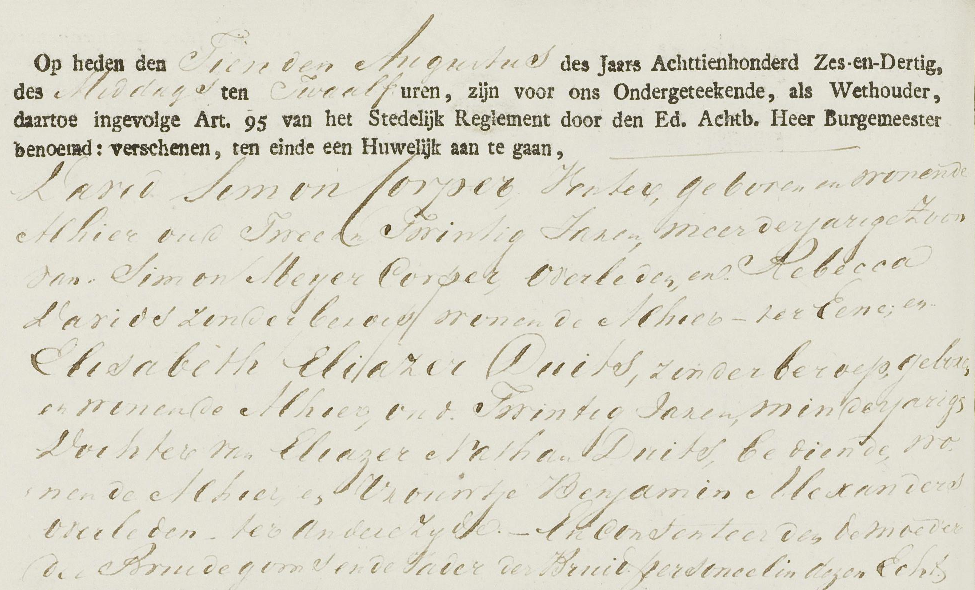 Op heden den Tienden Augustus des Jaars Achttienhonderd Zes-en-Dertig,
des Middags ten Twaalf uren, zijn voor ons Ondergeteekende, als Wethouder,
daartoe ingevolge Art. 95 van het Stedelijk Reglement door den Ed. Achtb. Heer Burgemeester
benoemd: verschenen, ten einde een Huwelijk aan te gaan,
David Simon Corper, Venter, geboren en wonende
Alhier oud Twee en Twintig Jaren, meerderjarige Zoon
van Simon Meyer Corper, Overleden, en Rebecca
Davids zonder beroep wonende Alhier - ter Eene; en
Elisabeth Eliazer Duits, zonder beroep, gebore,
en wonende Alhier, oud Twintig Jaren, minderjarige
Dochter van Eliazer Nathan Duits, bediende, wo-
nende Alhier, en Vrouwtje Benjamin Alexanders
overleden - ter andere Zyde. - En consenteerden de moeder
des Bruidegoms en de Vader der Bruid personeel in dezen Echt